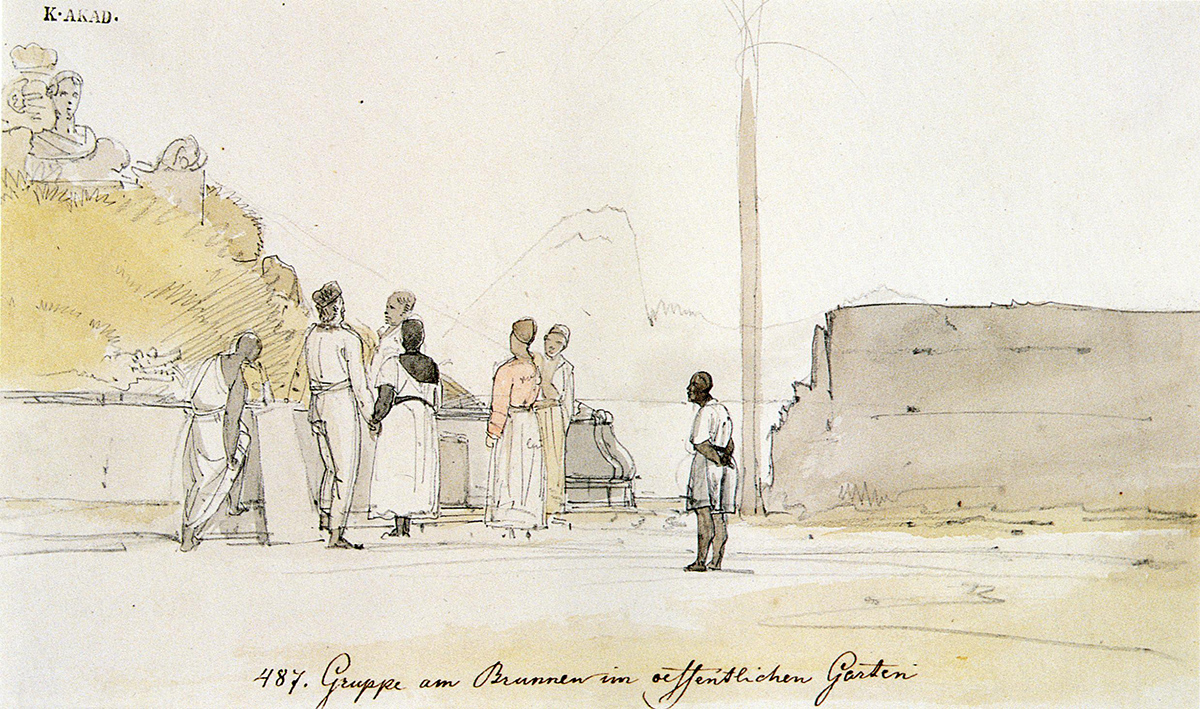 K·AKAD·
487. Gruppe am Brunnen im oeffentlichen Garten